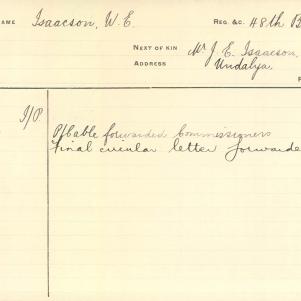 NAME Isaacson, W. E. REG &C. 48th B
NEXT OF KIN Mr J. E. Isaacson,
ADDRESS Undalya.
I/P P/Cable forwarded Commissioners
Final circular letter forwarde